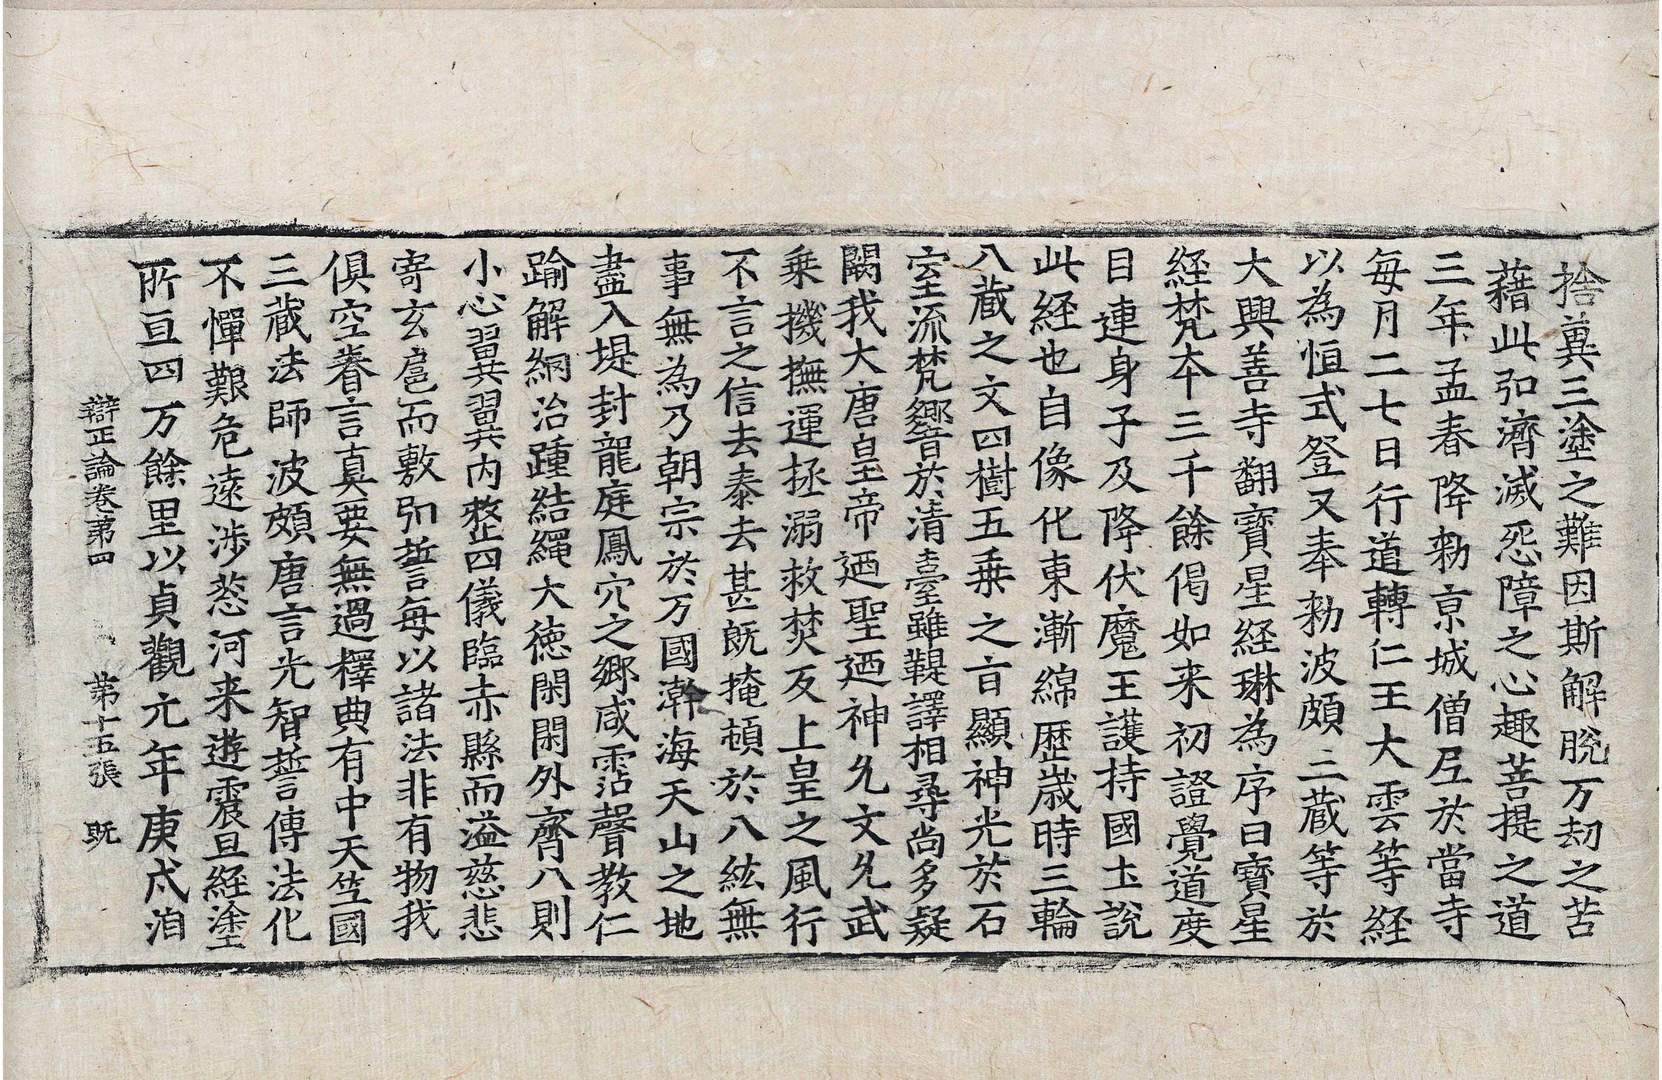 捨冀三塗之難因斯解脫万劫之苦
藉此弘濟滅怨障之心趣菩提之道
三年孟春降勑京城僧尼於當寺
每月二七日行道轉仁王大雲等經
以為恒式登又奉勑波頗三蔵等於
大興善寺翻寶星經琳為序曰寶星
經梵夲三千餘偈如来初證覺道度
目連身子及降伏魔王護持國土說
此經也自像化東漸綿歷歲時三輪
八蔵之文四樹五乗之旨顯神光於石
室流梵響於清臺雖鞮譯相尋尚多疑
闕我大唐皇帝迺聖迺神允文允武
乗機撫運拯溺救焚反上皇之風行
不言之信去泰去甚旣掩頓於八紘無
事無為乃朝宗於万國澣海天山之地
盡入堤封龍庭鳳穴之鄉咸霑聲教仁
踰解網治踵結繩大德閑閑外齊八則
小心翼翼內整四儀臨赤縣而溢慈悲
寄玄扈而敷弘誓每以諸法非有物我
俱空眷言真要無過釋典有中天竺國
三蔵法師波頗唐言光智誓傳法化
不憚艱危遠涉葱河来遊震旦經塗
所亘四万餘里以貞觀元年庚戌洎
辯正論卷第四 第十五張 旣